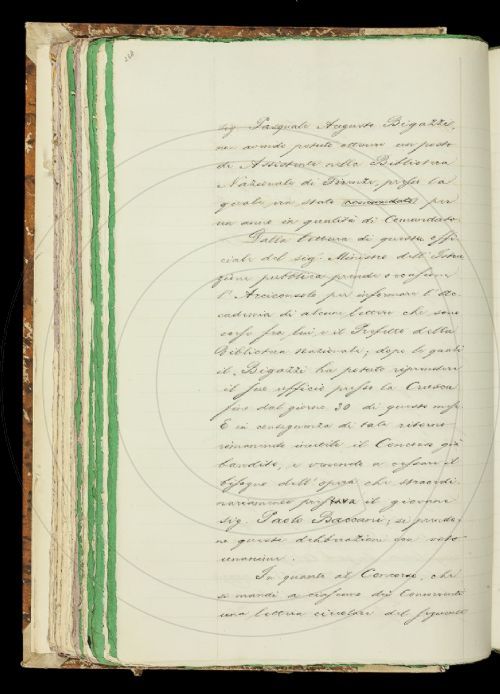 248
sig. Pasquale Augusto Bigazzi,
non avendo potuto ottenere un posto
di Assistente nella Biblioteca
Nazionale di Firenze, presso la
quale era stato comandato per
un anno in qualità di Comandato.
Dalla lettura di questa offi
ciale del sig. Ministro dell'Istru
zione pubblica prende occasione
l'Arciconsolo per informare l'Ac
cademia di alcune lettere che sono
corse fra lui e il Prefetto della
Biblioteca Nazionale; dopo le quali
il Bigazzi ha potuto riprendere
il suo ufficio presso la Crusca
fino dal giorno 20 di questo mese.
E in conseguenza di tale ritorno
rimanendo inutile il Concorso già
bandito, e venendo a cessare il
bisogno dell'opera che straordi
nariamente prestava il giovane
sig. Paolo Baccani; si prendo
no queste deliberazioni con voto
unanime.
In quanto al Concorso, che
si mandi a ciascuno dei Concorrenti
una lettera circolare del seguente